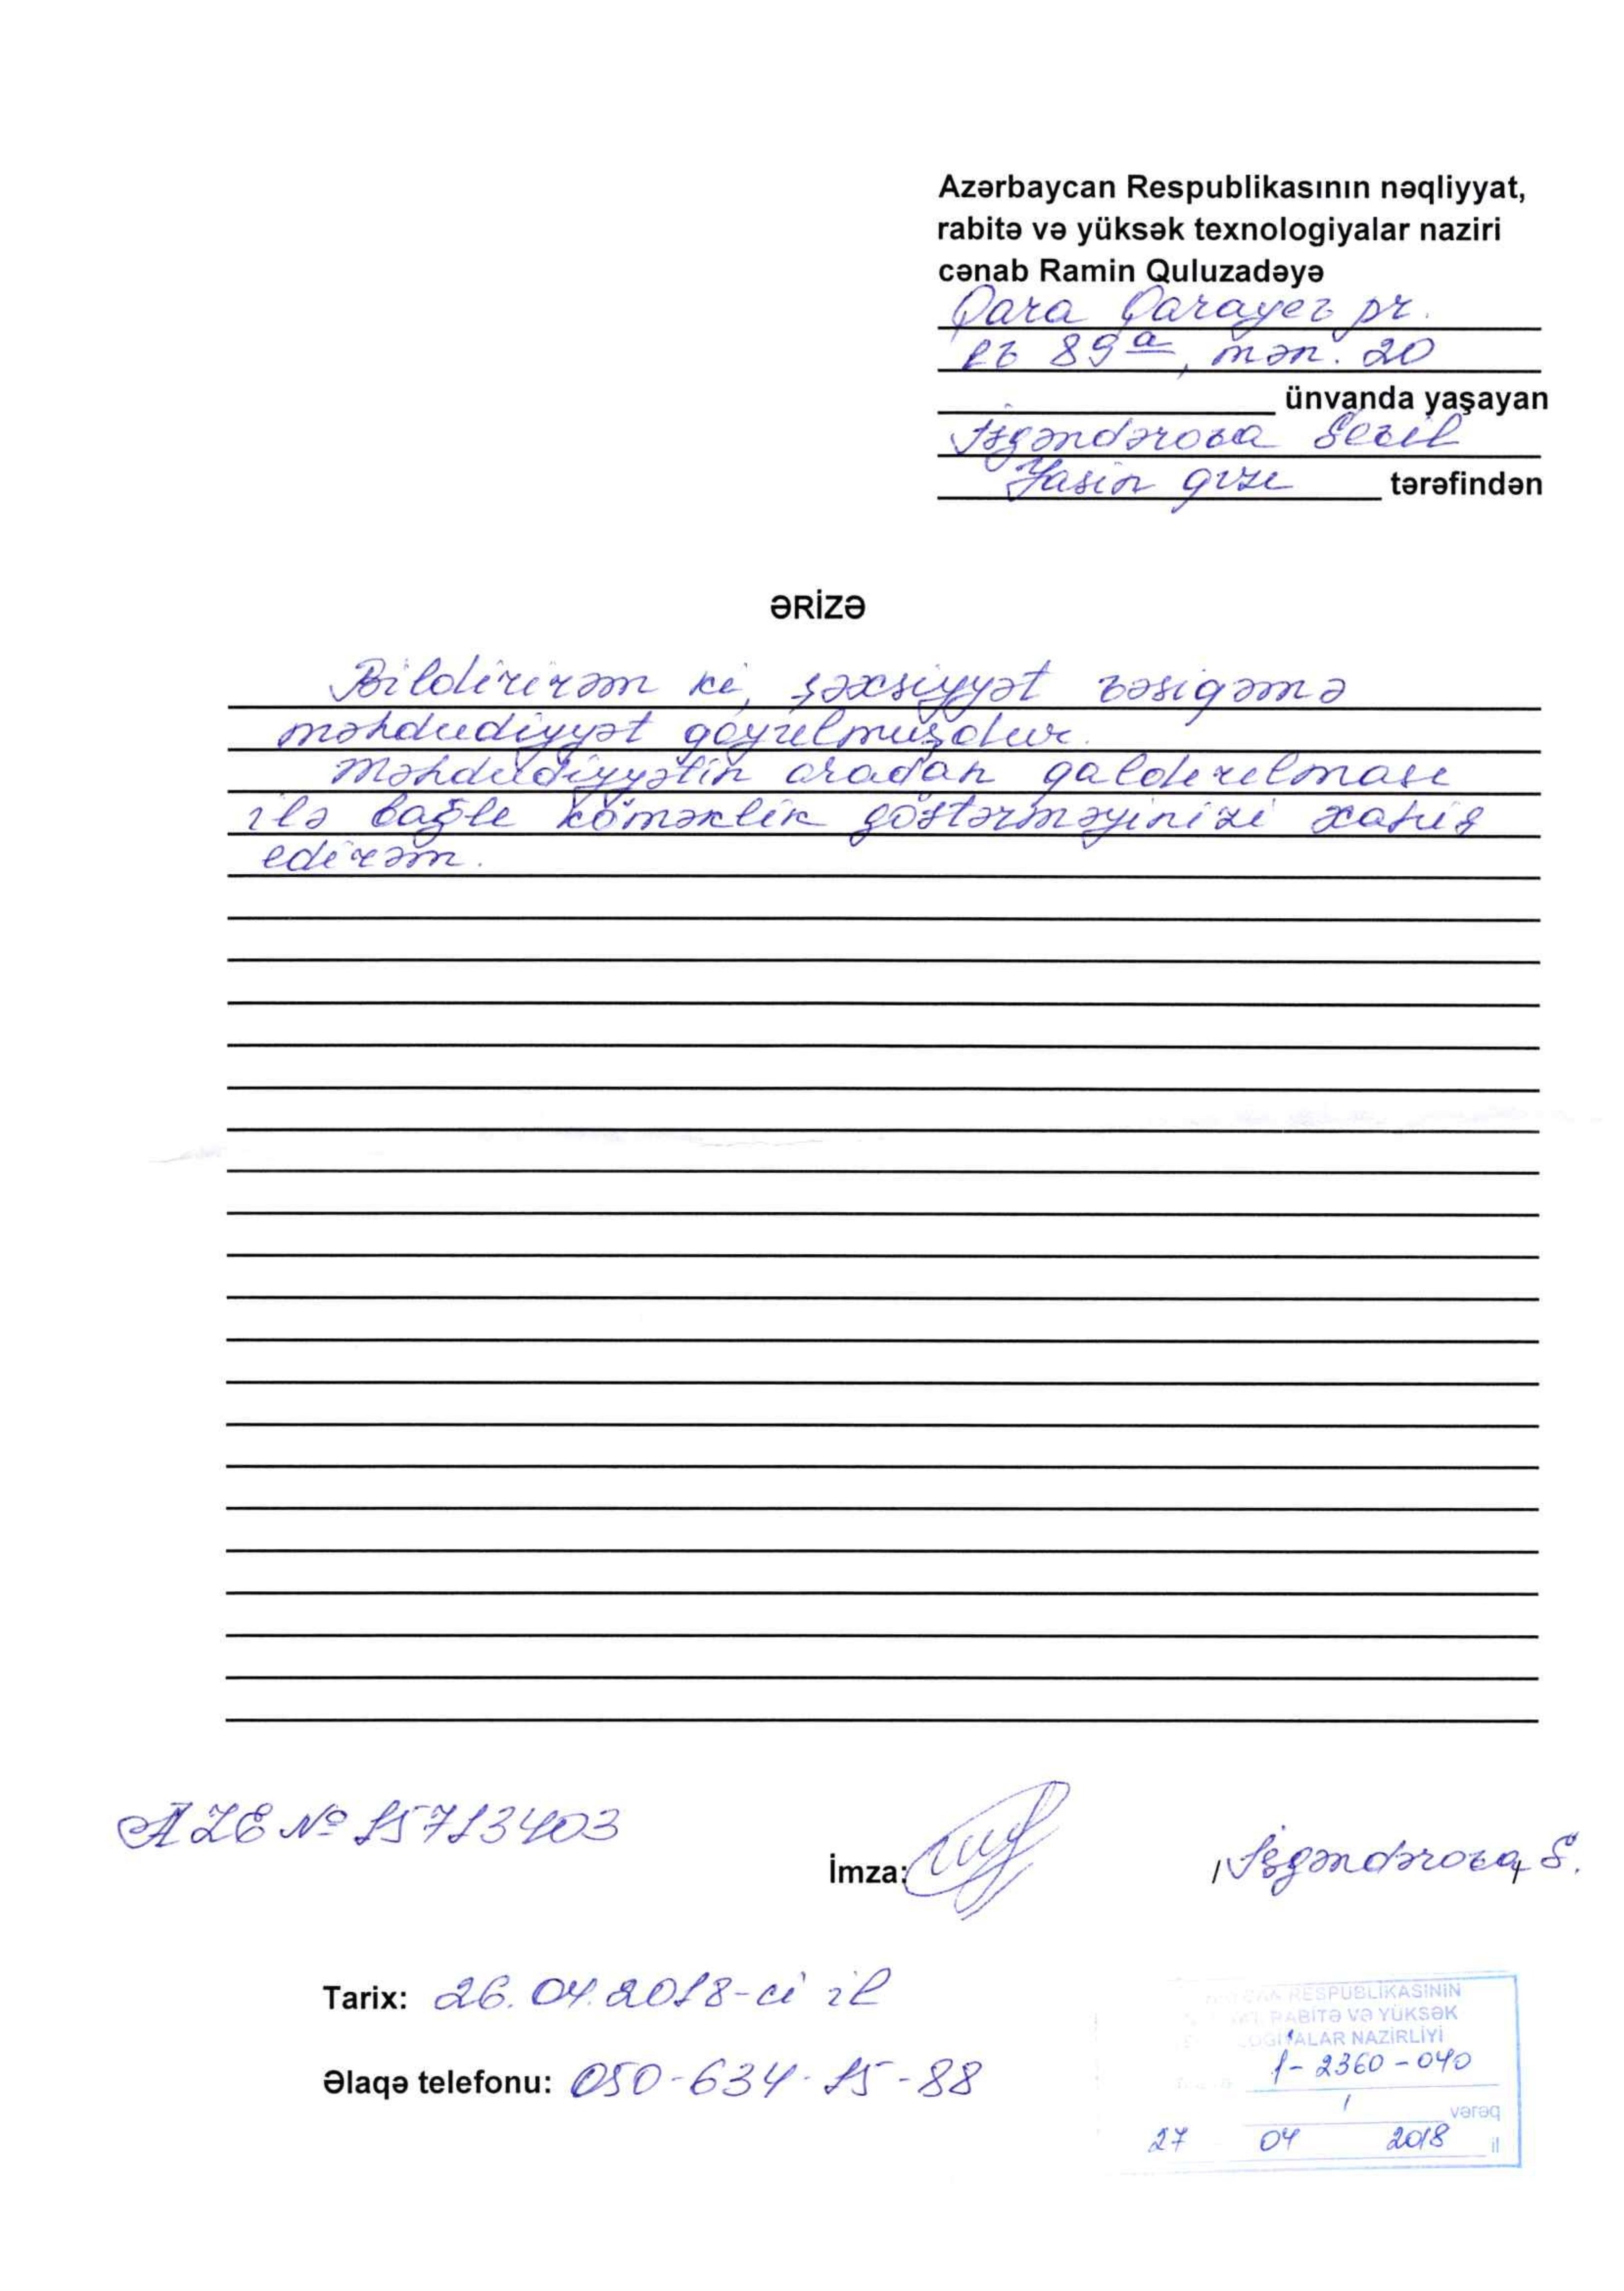 Azərbaycan Respublikasının nəqliyyat,
rabitə və yüksək texnologiyalar naziri
cənab Ramin Quluzadəyə
Qara Qarayev pr.
ev 89a, mən. 20
ünvanda yaşayan
İsgəndərova Sevil
Yasin qızı tərəfindən
ƏRİZƏ
Bildirirəm ki, şəxsiyyət vəsiqəmə
məhdudiyyət qoyulmuşdur.
Məhdudiyyətin aradan qaldırılması
ilə bağlı köməklik göstərməyinizi xahiş
edirəm.
AZE № 15713403
İmza: /İsgəndərova S./
Tarix: 26.04.2018-ci il
Əlaqə telefonu: 050-634-15-88
RESPUBLİKASININ
RABİTƏ VƏ YÜKSƏK
NAZİRLİYİ
1-2360-040
1 vərəq
27 04 2018 il